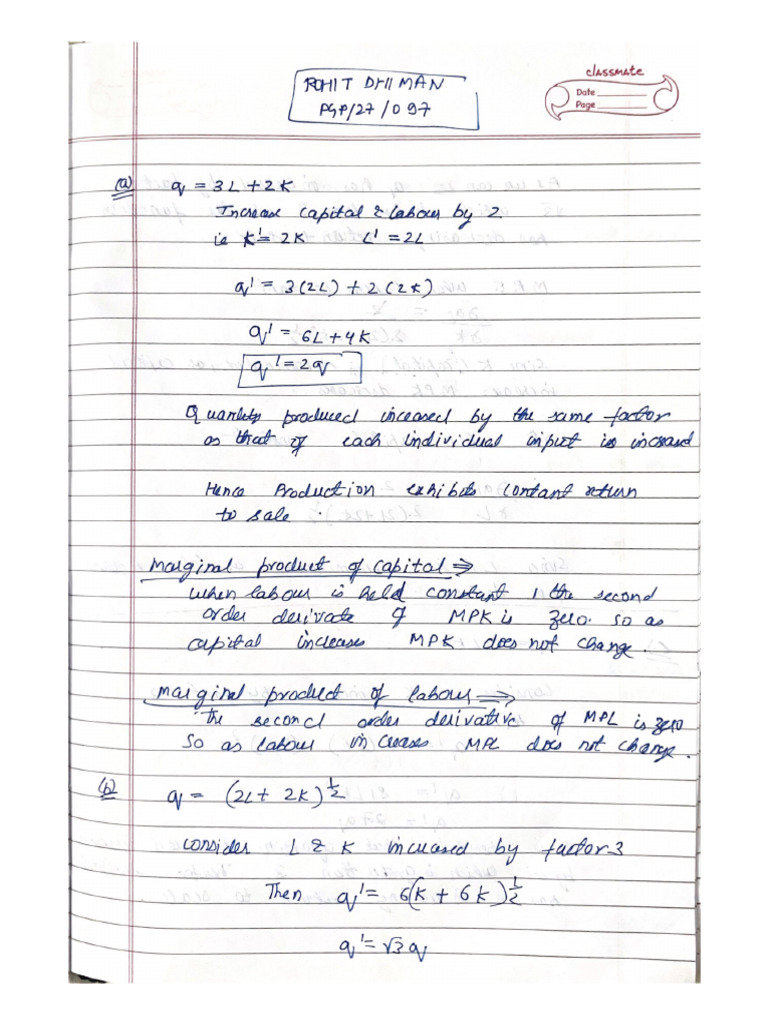 classmate
Date
Page
ROHIT DHIMAN
PGP/27/097
(a) q = 3L + 2K
Increase capital & labour by 2
ie K' = 2K L' = 2L
q' = 3(2L) + 2(2K)
q' = 6L + 4K
q' = 2q
Quantity produced inceased by the same factor
as that of each individual input is incrased
Hence Production exhibits contant return
to sale.
Marginal product of capital ⇒
when labour is held constant, the second
order derivate of MPK is zero. so as
capital increases MPK does not change.
Marginal product of labour ⇒
The second order derivative of MPL is zero
So as labour increases MPL does not change.
(b) q = (2L + 2K)^1/2
Consider L & K increased by factor 3
Then q' = 6(K + 6K)^1/2
q' = √3 q